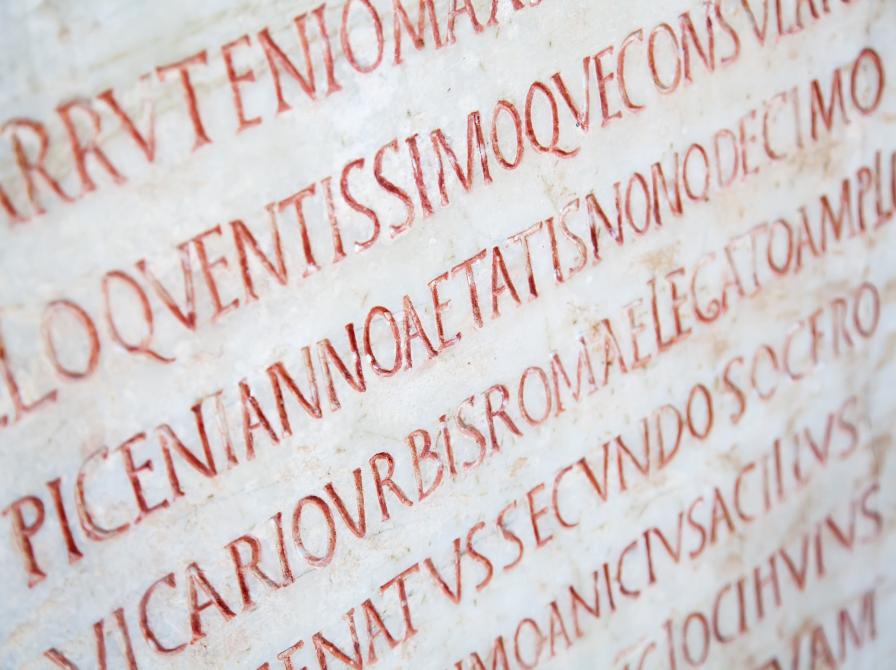 ARRVTENIOMAX
LOQVENTISSIMOQVECONSVLAR
PICENIANNOAETATISNONODECIMO
VICARIOVRBISROMAELEGATOAMPLI
ENATVSSECVNDOSOCERO
IMOANICIVSACILIVS
CIOCIHVIVS
VAM